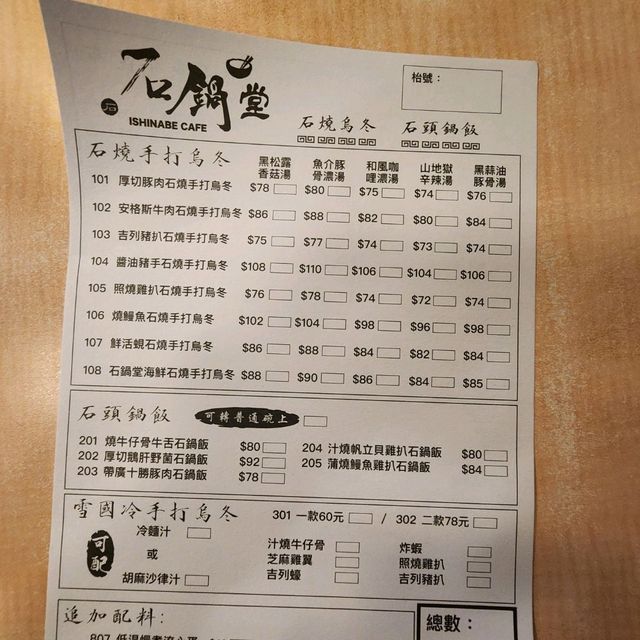 石鍋堂
ISHINABE CAFE
枱號：
石燒烏冬 石頭鍋飯
石燒手打烏冬 黑松露香菇湯 魚介豚骨濃湯 和風咖喱濃湯 山地獄辛辣湯 黑蒜油豚骨湯
101 厚切豚肉石燒手打烏冬 $78 $80 $75 $74 $76
102 安格斯牛肉石燒手打烏冬 $86 $88 $82 $80 $84
103 吉列豬扒石燒手打烏冬 $75 $77 $74 $73 $74
104 醬油豬手石燒手打烏冬 $108 $110 $106 $104 $106
105 照燒雞扒石燒手打烏冬 $76 $78 $74 $72 $74
106 燒鰻魚石燒手打烏冬 $102 $104 $98 $96 $98
107 鮮活蜆石燒手打烏冬 $86 $88 $84 $82 $84
108 石鍋堂海鮮石燒手打烏冬 $88 $90 $86 $84 $85
石頭鍋飯 可轉普通碗上
201 燒牛仔骨牛舌石鍋飯 $80 204 汁燒帆立貝雞扒石鍋飯 $80
202 厚切鵝肝野菌石鍋飯 $92 205 蒲燒鰻魚雞扒石鍋飯 $84
203 帶廣十勝豚肉石鍋飯 $78
雪國冷手打烏冬 301 一款60元 / 302 二款78元
可配
冷麵汁 汁燒牛仔骨 炸蝦
或 芝麻雞翼 照燒雞扒
胡麻沙律汁 吉列蠔 吉列豬扒
追加配料： 總數：